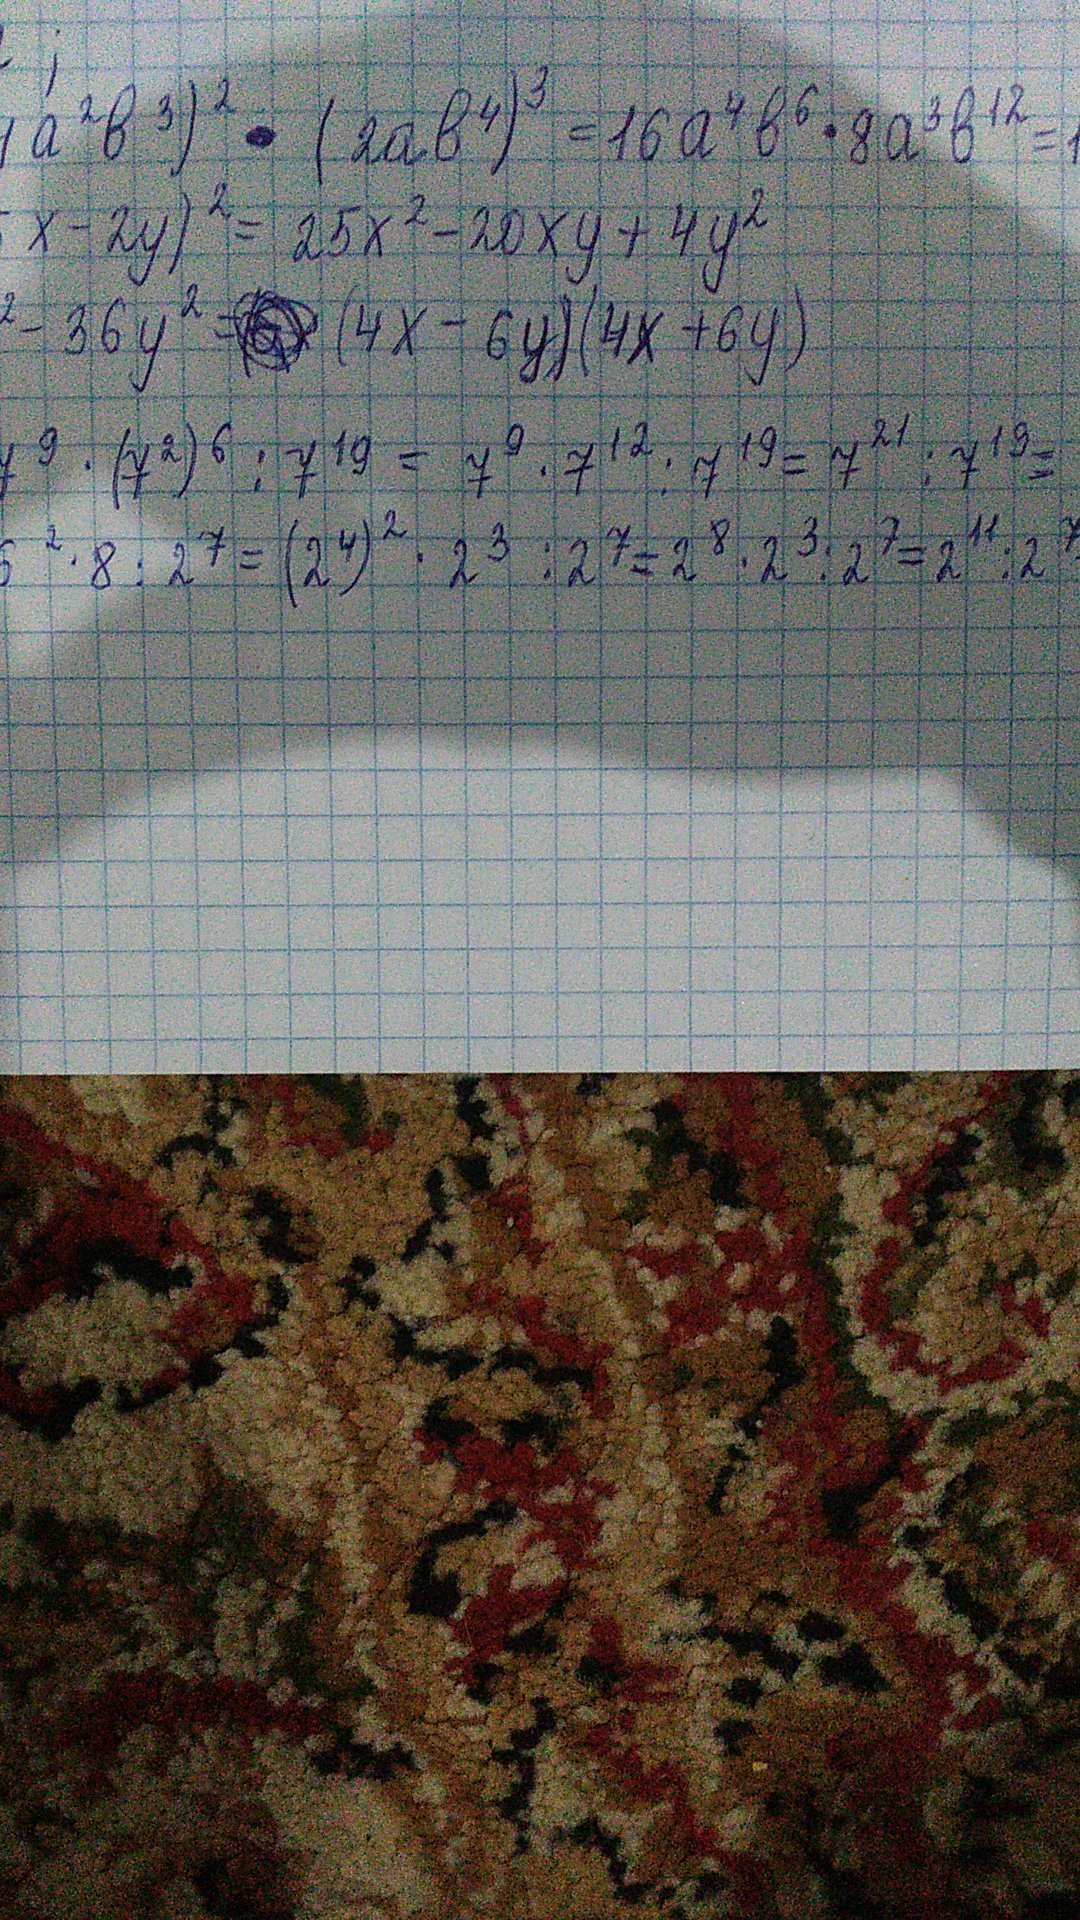 a²b³)² • (2ab⁴)³ = 16a⁴b⁶ · 8a³b¹² = 1
x - 2y)² = 25x² - 20xy + 4y²
² - 36y² = (4x - 6y)(4x + 6y)
7⁹ · (7²)⁶ : 7¹⁹ = 7⁹ · 7¹² : 7¹⁹ = 7²¹ : 7¹⁹ =
6² · 8 : 2⁷ = (2⁴)² · 2³ : 2⁷ = 2⁸ · 2³ : 2⁷ = 2¹¹ : 2⁷